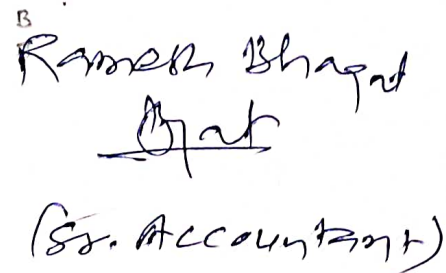 B
Ramesh Bhagat
(Sr. Accountant)